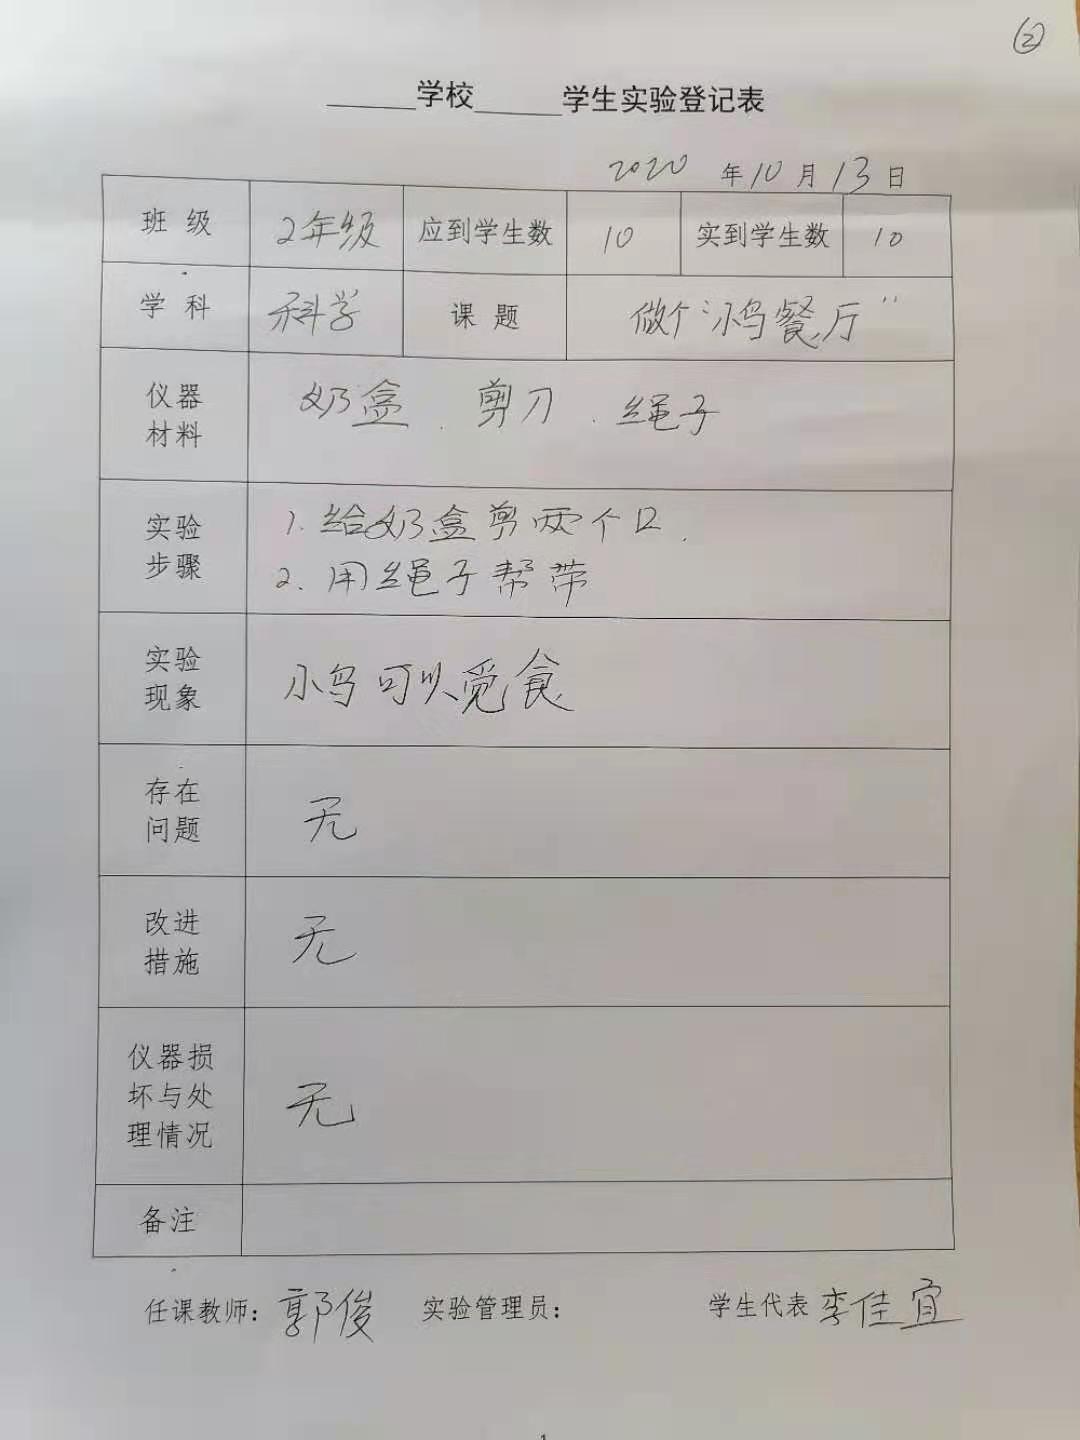 ②
______学校______学生实验登记表
2020 年10月13日
班 级 2年级 应到学生数 10 实到学生数 10
学 科 科学 课 题 做个“小鸟餐厅”
仪器
材料
奶盒、剪刀、绳子
实验
步骤
1. 给奶盒剪两个口.
2. 用绳子帮带
实验
现象
小鸟可以觅食
存在
问题
无
改进
措施
无
仪器损
坏与处
理情况
无
备注
任课教师：郭俊 实验管理员： 学生代表 李佳宜
1